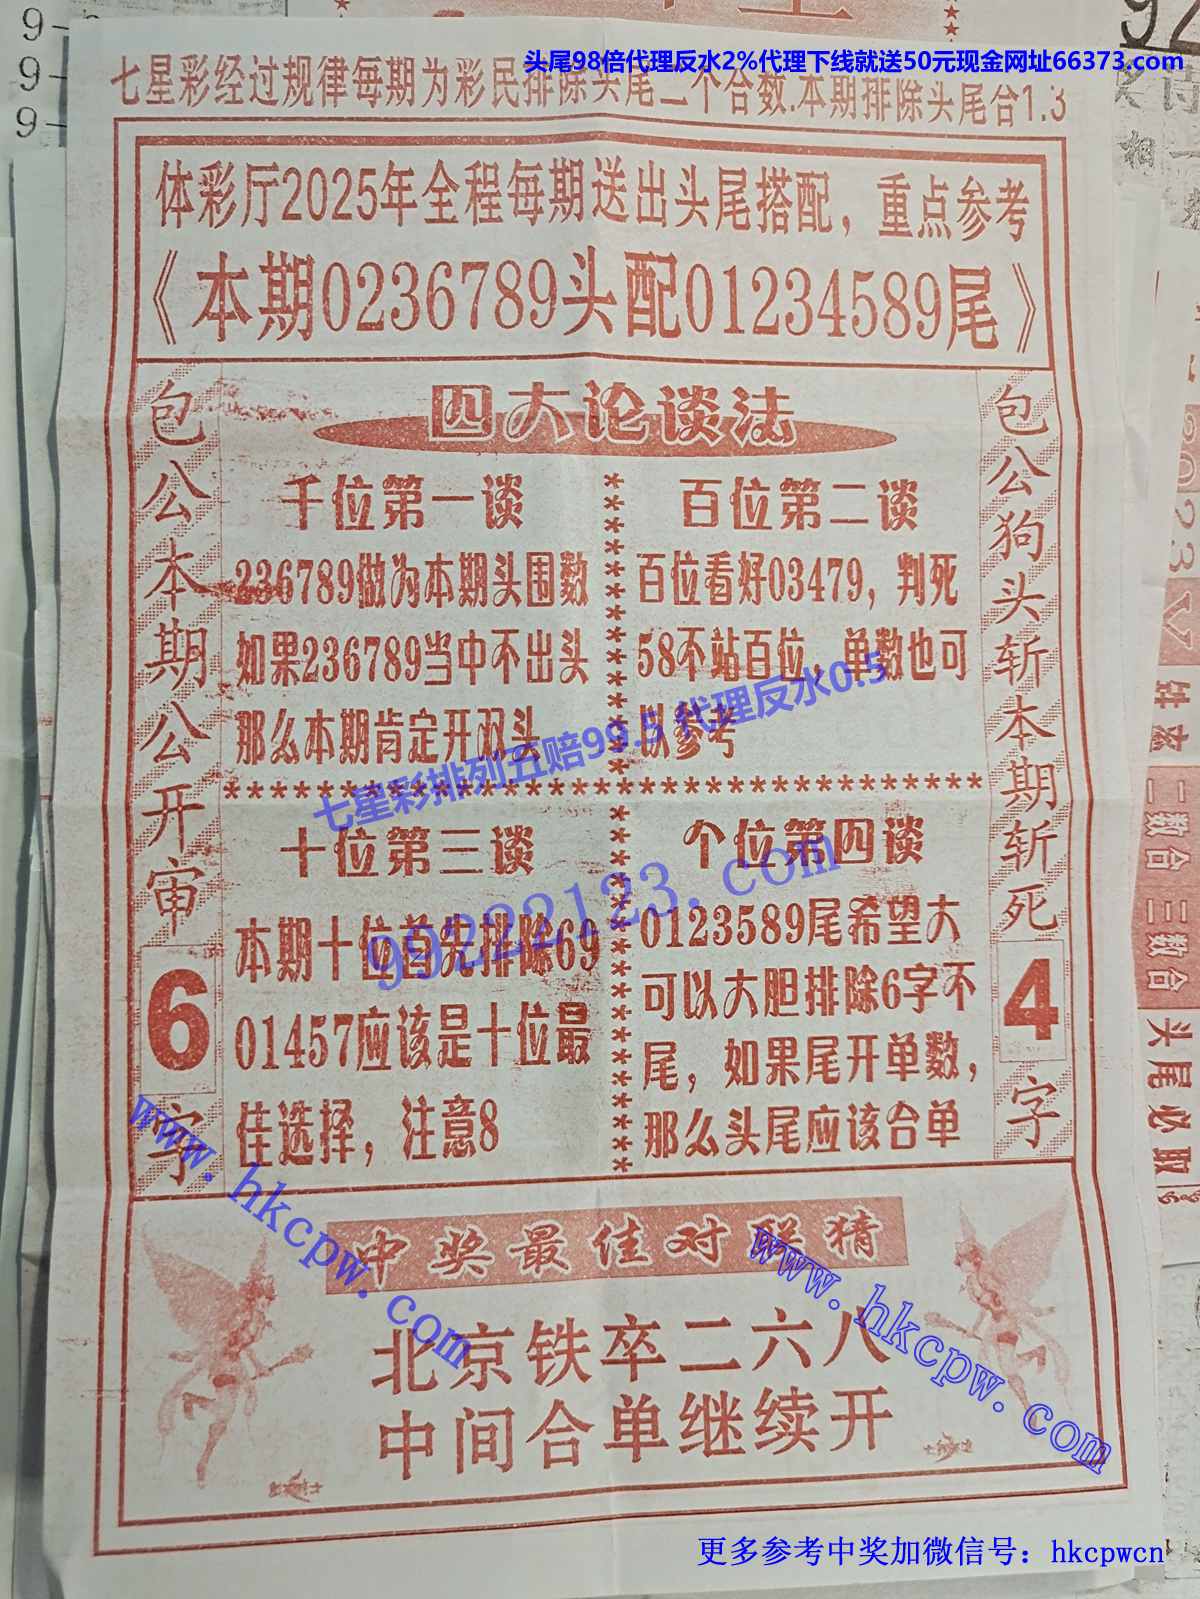 头尾98倍代理反水2%代理下线就送50元现金网址66373.com
七星彩经过规律每期为彩民排除头尾二个合数.本期排除头尾合1.3
体彩厅2025年全程每期送出头尾搭配，重点参考
《本期0236789头配01234589尾》
包公本期公开审6字
四大论谈法
千位第一谈
236789做为本期头围数
如果236789当中不出头
那么本期肯定开双头
百位第二谈
百位看好03479，判死
58不站百位，单数也可
以参考
七星彩排列五赔99.5 代理反水0.5
99222123.com
十位第三谈
本期十位首先排除69
01457应该是十位最
佳选择，注意8
个位第四谈
0123589尾希望大
可以大胆排除6字不
尾，如果尾开单数，
那么头尾应该合单
包公狗头斩本期斩死4字
www.hkcpw.com
www.hkcpw.com
中奖最佳对联猜
北京铁卒二六八
中间合单继续开
更多参考中奖加微信号：hkcpwcn
二数合三数合
头尾必取